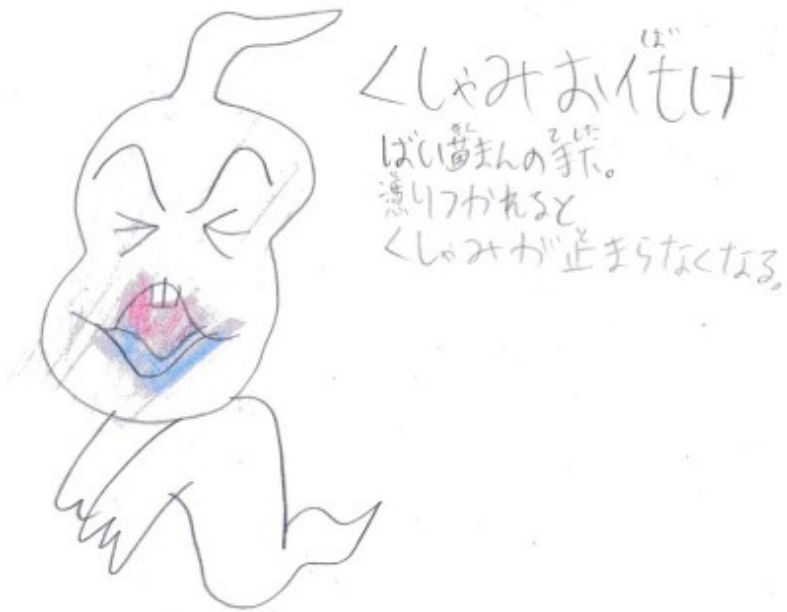 くしゃみお化け
ばい菌まんの手下。
憑りつかれると
くしゃみが止まらなくなる。